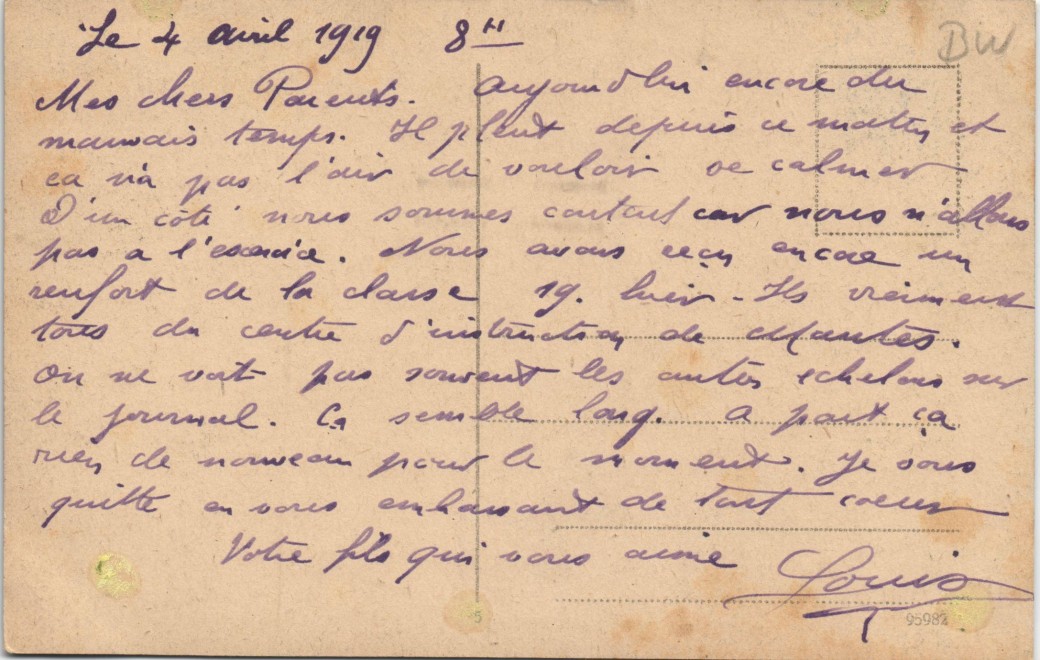 Le 4 avril 1919 8H
BW
Mes chers Parents. Aujourd'hui encore du
mauvais temps. Il pleut depuis ce matin et
ca n'a pas l'air de vouloir se calmer
D'un côté nous sommes content car nous n'allons
pas a l'exercice. Nous avons reçu encore un
renfort de la classe 19. hier - Ils viennent
tous du centre d'instruction de Mantes.
On ne voit pas souvent les autres echelons sur
le journal. Ca semble long. A part ça
rien de nouveau pour le moment. Je vous
quitte en vous embrassant de tout coeur
Votre fils qui vous aime
Louis
5
95982